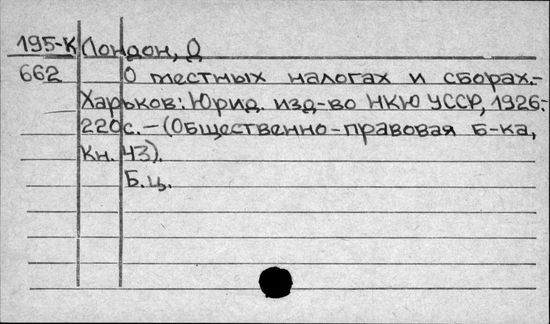 195-К Лондон, Д
662 О местных налогах и сборах.-
Харьков: Юрид. изд-во НКЮ УССР, 1926.-
220с.-(Общественно-правовая б-ка,
Кн. 43).
Б.ц.